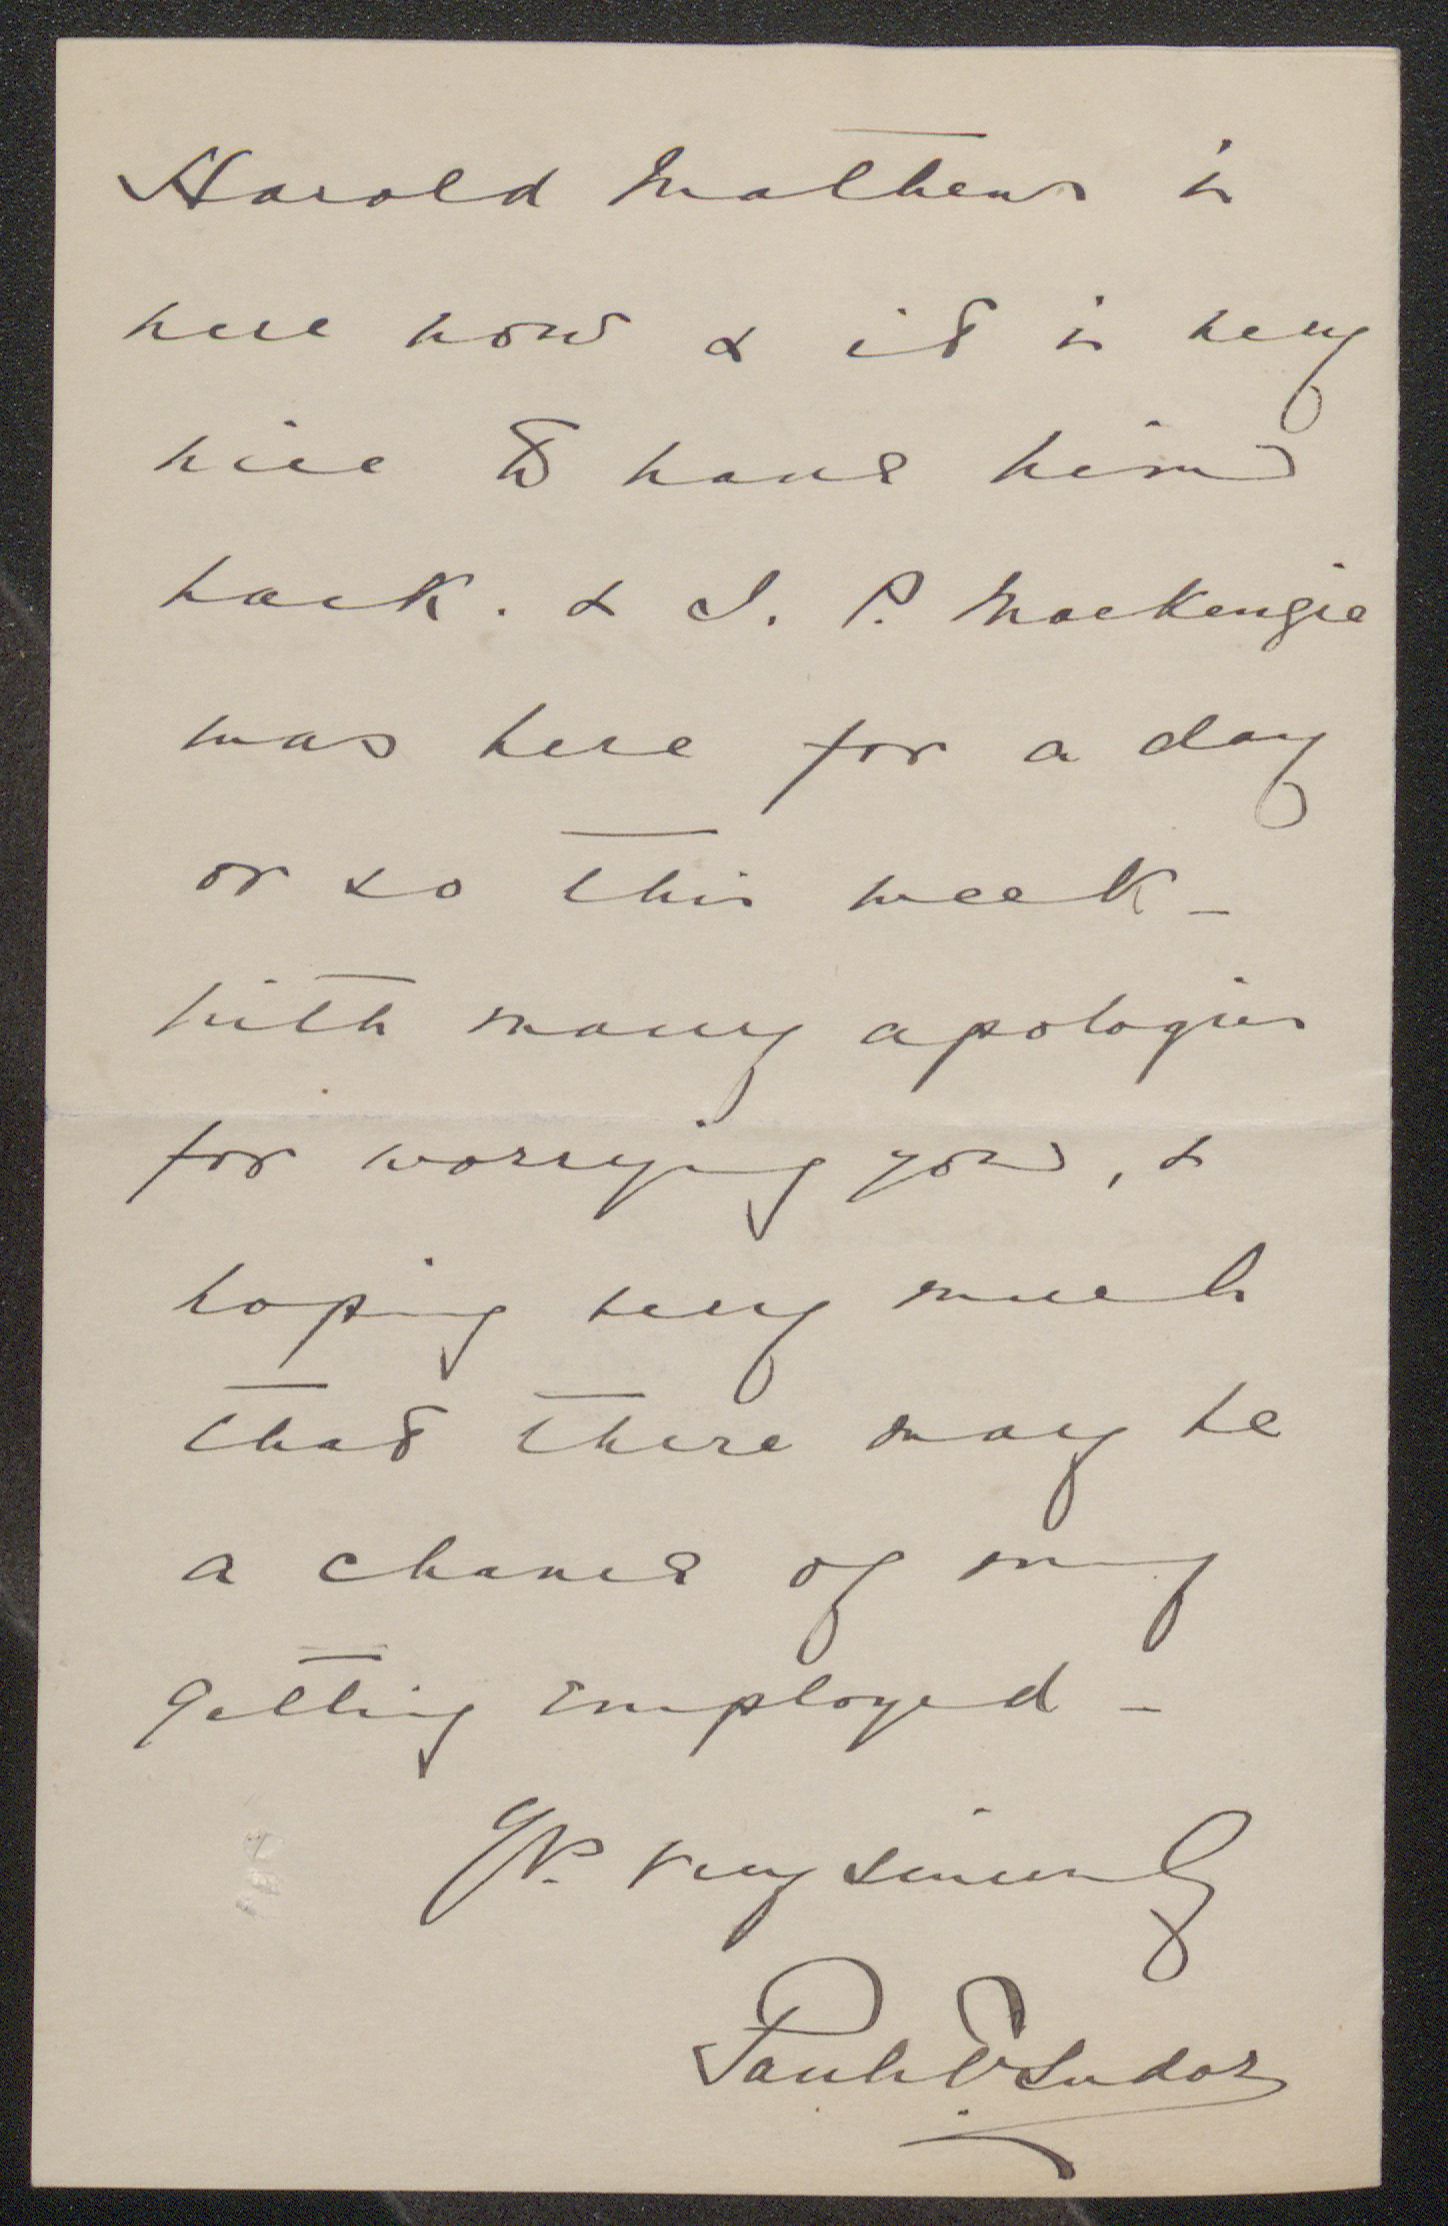 Harold Mathews is
here now & it is very
nice to have him
back. & J. P. Mackenzie
was here for a day
or so this week -
With many apologies
for worrying you, &
hoping very much
that there may be
a chance of my
getting employed -
Yrs. very sincerely
Tudor